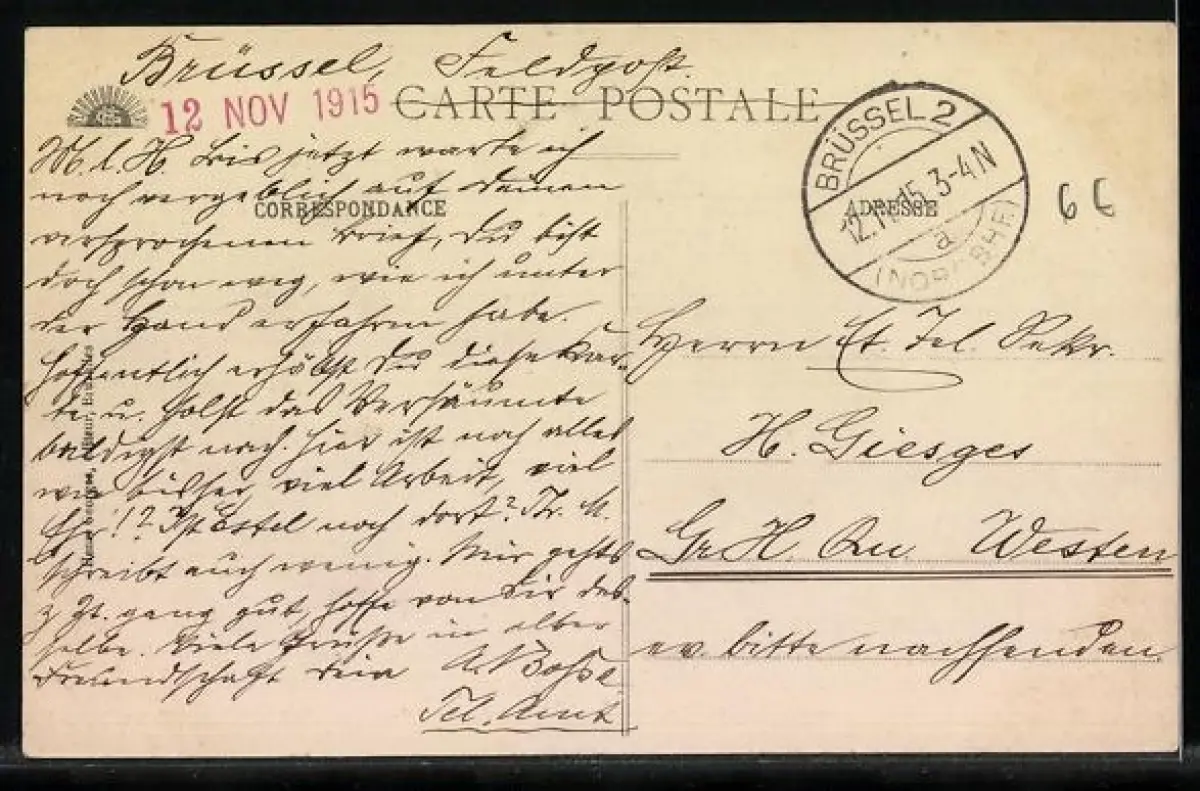 Brüssel, Feldpost.
12 NOV 1915
CARTE POSTALE
M. l. H. bis jetzt warte ich
noch vergeblich auf deinen
CORRESPONDANCE
versprochenen Brief, Du bist
doch schon weg, wie ich unter
der Hand erfahren habe.
Hoffentlich erhältst Du diese Kar-
te u. holst das Versäumte
baldigst nach. Hier ist noch alles
wie bisher, viel Arbeit, viel
!? Ist noch dort?
schreibt auch wenig. Mir gehts
z. Zt. ganz gut, hoffe von Dir das-
selbe. Viele Grüße in alter
Freundschaft Dein
Tel. Amt
BRÜSSEL 2
12.11.15 3-4 N
a
ADRESSE
66
Herrn Et. Tel. Sekr.
H. Giesges
Gr. H. Qu. Westen
ev. bitte nachsenden.